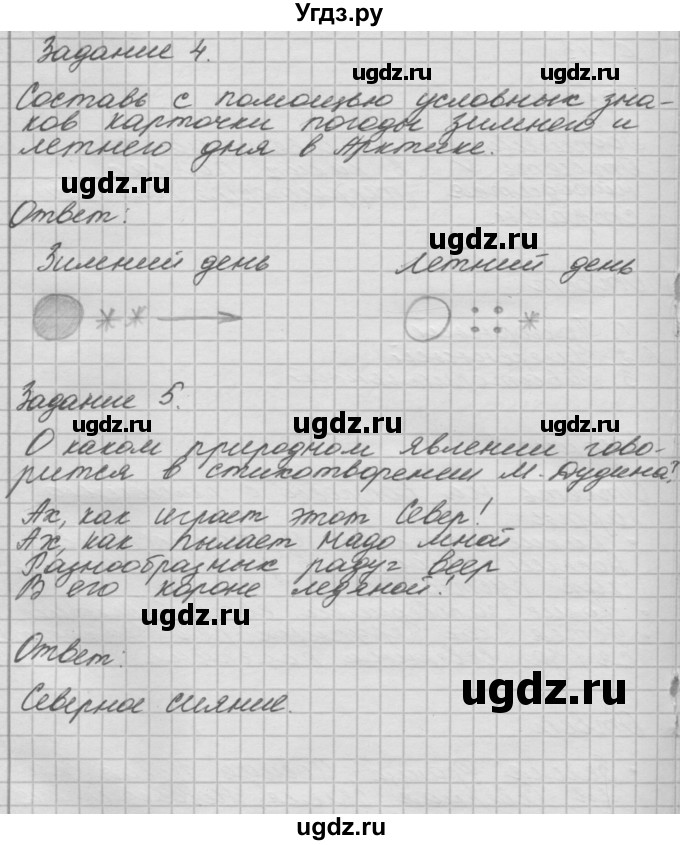 Угдз.ру
Задание 4.
ugdz.ru ugdz.ru
Составь с помощью условных зна-
ков карточки погоды зимнего и
летнего дня в Арктике.
ugdz.ru
Ответ:
ugdz.ru
Зимний день Летний день
Задание 5.
ugdz.ru ugdz.ru ugdz.ru
О каком природном явлении гово-
рится в стихотворении М. Дудина?
Ах, как играет этот Север!
Ах, как пылает надо мной
Разнообразных радуг веер
В его короне ледяной!
ugdz.ru ugdz.ru
Ответ:
ugdz.ru
Северное сияние.
ugdz.ru